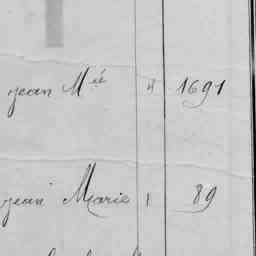 jean Mie 4 1691
jean Marie 1 89